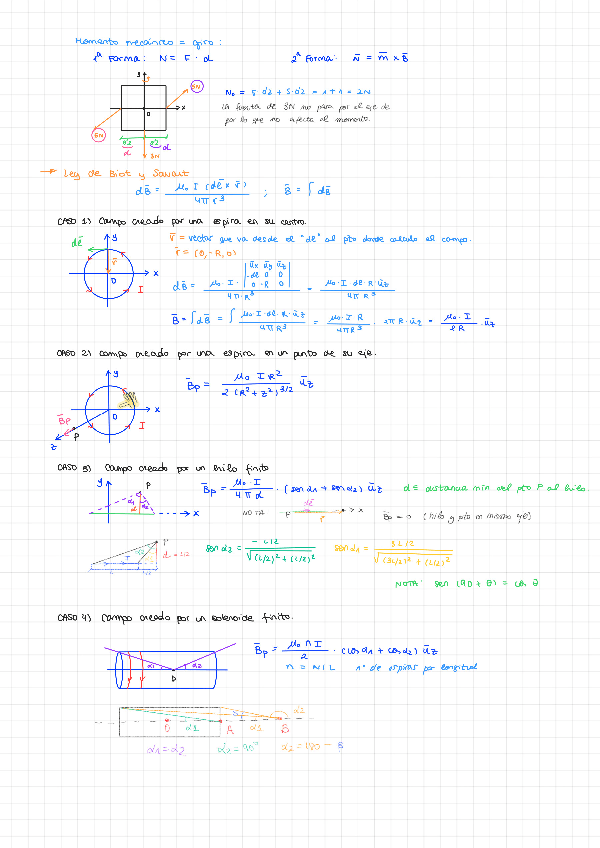 Momento mecánico = giro:
1ª Forma: N = F · d
2ª Forma: N̄ = m̄ x B̄
y
5N
N₀ = F·d2 + 5·d2 = 1 + 1 = 2N
0
x
La fuerza de 3N no pasa por el eje de
por lo que no afecta al momento.
5N
d
d
3N
→ Ley de Biot y Savart
dB̄ = μ₀ I (dl̄ x r̄) / 4π r³ ; B̄ = ∫ dB̄
CASO 1) Campo creado por una espira en su centro.
dl̄
y
r̄ = vector que va desde el "dl" al pto donde calculo el campo.
r̄ = (0, -R, 0)
r̄
x
0
I
dB̄ = μ₀ · I · |ūx ūy ūz; -dl 0 0; 0 -R 0| / 4π · R³ = μ₀ · I · dl · R · ūz / 4π R³
B̄ = ∫ dB̄ = ∫ μ₀ · I · dl · R · ūz / 4π R³ = μ₀ · I R / 4π R³ · 2π R · ūz = μ₀ · I / 2R · ūz
CASO 2) Campo creado por una espira en un punto de su eje.
y
B̄p = μ₀ I R² / 2 (R² + z²)^3/2 ūz
x
0
B̄p
P
I
z
CASO 3) Campo creado por un hilo finito
y
P
B̄p = μ₀ · I / 4 π d · (sen α1 + sen α2) ūz
d = distancia min del pto P al hilo.
α1
α2
d
x
NOTA
P
dl̄
r̄
x
B̄p = 0 (hilo y pto en mismo eje)
P
d = L/2
I
sen α2 = - L/2 / √(L/2)² + (L/2)²
sen α1 = 3L/2 / √(3L/2)² + (L/2)²
NOTA: sen (90 + θ) = cos θ
CASO 4) Campo creado por un solenoide finito.
B̄p = μ₀ n I / 2 · (cos α1 + cos α2) ūz
α1
α2
n = N/L nº de espiras por longitud
α2
0
α1
A
α1
B
α1 = α2
α2 = 90°
α2 = 180 - β